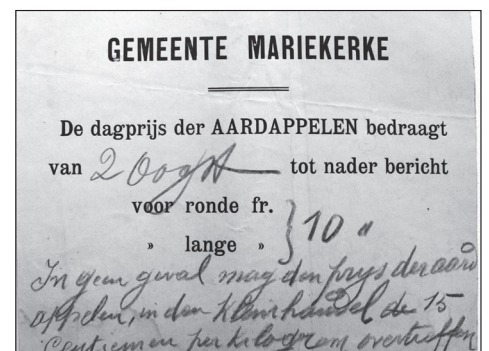 GEMEENTE MARIEKERKE
De dagprijs der AARDAPPELEN bedraagt
van 2 Oogst tot nader bericht
voor ronde fr. } 10 "
» lange »
In geen geval mag den prys der aard
appelen, in den kleinhandel de 15
Centiemen per kilogram overtreffen